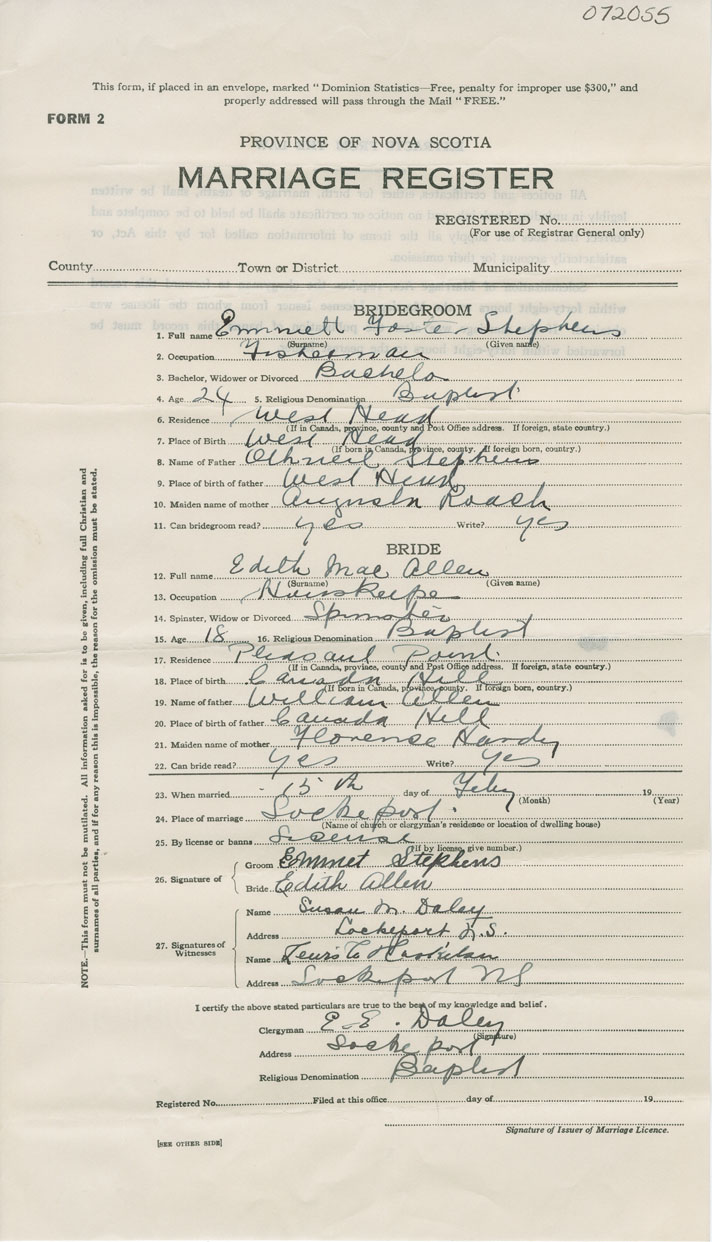 072055
This form, if placed in an envelope, marked "Dominion Statistics—Free, penalty for improper use $300," and
properly addressed will pass through the Mail "FREE."
FORM 2
PROVINCE OF NOVA SCOTIA
MARRIAGE REGISTER
REGISTERED No.
(For use of Registrar General only)
County Town or District Municipality
BRIDEGROOM
1. Full name Emmett Foster Stephens
(Surname) (Given name)
2. Occupation Fisherman
3. Bachelor, Widower or Divorced Bachelo
4. Age 24 5. Religious Denomination Baptist
6. Residence West Head
(If in Canada, province, county and Post Office address. If foreign, state country.)
7. Place of Birth West Head
(If born in Canada, province, county. If foreign born, country.)
8. Name of Father Othneil Stephens
9. Place of birth of father West Head
10. Maiden name of mother Augusta Roach
11. Can bridegroom read? yes Write? yes
BRIDE
12. Full name Edith Mae Allen
(Surname) (Given name)
13. Occupation Houskeepe
14. Spinster, Widow or Divorced Spinster
15. Age 18 16. Religious Denomination Baptist
17. Residence Pleasant Point
(If in Canada, province, county and Post Office address. If foreign, state country.)
18. Place of birth Canada Hill
(If born in Canada, province, county. If foreign born, country.)
19. Name of father William Allen
20. Place of birth of father Canada Hill
21. Maiden name of mother Florense Hardy
22. Can bride read? yes Write? yes
23. When married 15th day of Feby 19
(Month) (Year)
24. Place of marriage Lockeport.
(Name of church or clergyman's residence or location of dwelling house)
25. By license or banns License
(if by license, give number.)
26. Signature of
Groom Emmet Stephens
Bride Edith Allen
27. Signatures of Witnesses
Name Susan M. Daley
Address Lockeport N.S.
Name Lewis
Address Lockeport NS
I certify the above stated particulars are true to the best of my knowledge and belief.
Clergyman E. E. Daley
(Signature)
Address Locke port
Religious Denomination Baptist
Registered No. Filed at this office day of 19
Signature of Issuer of Marriage Licence.
[SEE OTHER SIDE]
NOTE.—This form must not be mutilated. All information asked for is to be given, including full Christian and
surnames of all parties, and if for any reason this is impossible, the reason for the omission must be stated.